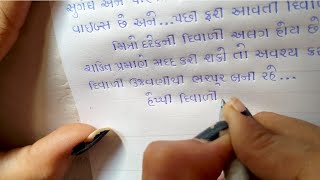 સુગંધ અને
વાઈબ્સ છે અને...પછી ફરી આવતી દિવા
મિત્રો દરેકની દિવાળી અલગ હોય છે
શક્તિ પ્રમાણે મદદ કરી શકો તો અવશ્ય કર
દિવાળી ઉજવણીથી ભરપૂર બની રહે...
હેપ્પી દિવાળી